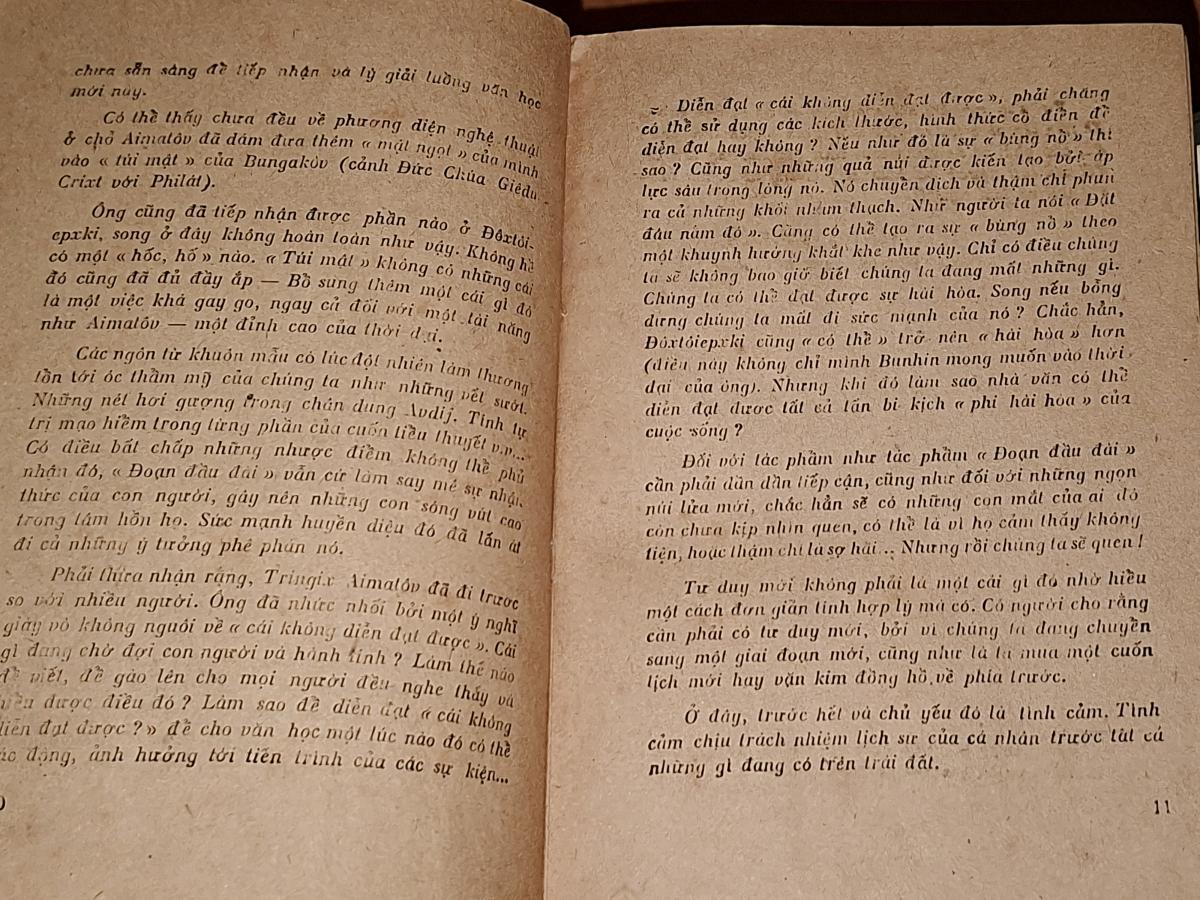 chưa sẵn sàng để tiếp nhận và lý giải luồng văn học
mới này.
Có thể thấy chưa đều về phương diện nghệ thuật
ở chỗ Aimatôv đã dám đưa thêm « mật ngọt » của mình
vào « túi mật » của Bungakôv (cảnh Đức Chúa Giêdu
Crixt với Philát).
Ông cũng đã tiếp nhận được phần nào ở Đôxtôi-
epxki, song ở đây không hoàn toàn như vậy. Không hề
có một « hốc, hố » nào. « Túi mật » không có những cái
đó cũng đã đủ đầy ắp — Bổ sung thêm một cái gì đó
là một việc khá gay go, ngay cả đối với một tài năng
như Aimatôv — một đỉnh cao của thời đại.
Các ngôn từ khuôn mẫu có lúc đột nhiên làm thương
tổn tới óc thẩm mỹ của chúng ta như những vết sướt.
Những nét hơi gượng trong chân dung Avdij. Tính tự
trị mạo hiểm trong từng phần của cuốn tiểu thuyết v.v...
Có điều bất chấp những nhược điểm không thể phủ
nhận đó, « Đoạn đầu đài » vẫn cứ làm say mê sự nhận
thức của con người, gây nên những con sóng vút cao
trong tâm hồn họ. Sức mạnh huyền diệu đó đã lấn át
đi cả những ý tưởng phê phán nó.
Phải thừa nhận rằng, Tringix Aimatôv đã đi trước
so với nhiều người. Ông đã nhức nhối bởi một ý nghĩ
giày vò không nguôi về « cái không diễn đạt được ». Cái
gì đang chờ đợi con người và hành tinh ? Làm thế nào
để viết, để gào lên cho mọi người đều nghe thấy và
hiểu được điều đó ? Làm sao để diễn đạt « cái không
diễn đạt được ?» để cho văn học một lúc nào đó có thể
tác động, ảnh hưởng tới tiến trình của các sự kiện...
Diễn đạt « cái không diễn đạt được », phải chăng
có thể sử dụng các kích thước, hình thức cổ điển để
diễn đạt hay không ? Nếu như đó là sự « bùng nổ » thì
sao ? Cũng như những quả núi được kiến tạo bởi áp
lực sâu trong lòng nó. Nó chuyển dịch và thậm chí phun
ra cả những khối nham thạch. Như người ta nói « Đất
đâu nấm đó ». Cũng có thể tạo ra sự « bùng nổ » theo
một khuynh hướng khắt khe như vậy. Chỉ có điều chúng
ta sẽ không bao giờ biết chúng ta đang mất những gì.
Chúng ta có thể đạt được sự hài hòa. Song nếu bỗng
dưng chúng ta mất đi sức mạnh của nó ? Chắc hẳn,
Đôxtôiepxki cũng « có thể » trở nên « hài hòa » hơn
(điều này không chỉ mình Bunhin mong muốn vào thời
đại của ông). Nhưng khi đó làm sao nhà văn có thể
diễn đạt được tất cả tấn bi kịch « phi hài hòa » của
cuộc sống ?
Đối với tác phẩm như tác phẩm « Đoạn đầu đài »
cần phải dần dần tiếp cận, cũng như đối với những ngọn
núi lửa mới, chắc hẳn sẽ có những con mắt của ai đó
còn chưa kịp nhìn quen, có thể là vì họ cảm thấy không
tiện, hoặc thậm chí là sợ hãi... Nhưng rồi chúng ta sẽ quen !
Tư duy mới không phải là một cái gì đó nhờ hiểu
một cách đơn giản tính hợp lý mà có. Có người cho rằng
cần phải có tư duy mới, bởi vì chúng ta đang chuyển
sang một giai đoạn mới, cũng như là ta mua một cuốn
lịch mới hay vặn kim đồng hồ về phía trước.
Ở đây, trước hết và chủ yếu đó là tình cảm. Tình
cảm chịu trách nhiệm lịch sử của cá nhân trước tất cả
những gì đang có trên trái đất.
11